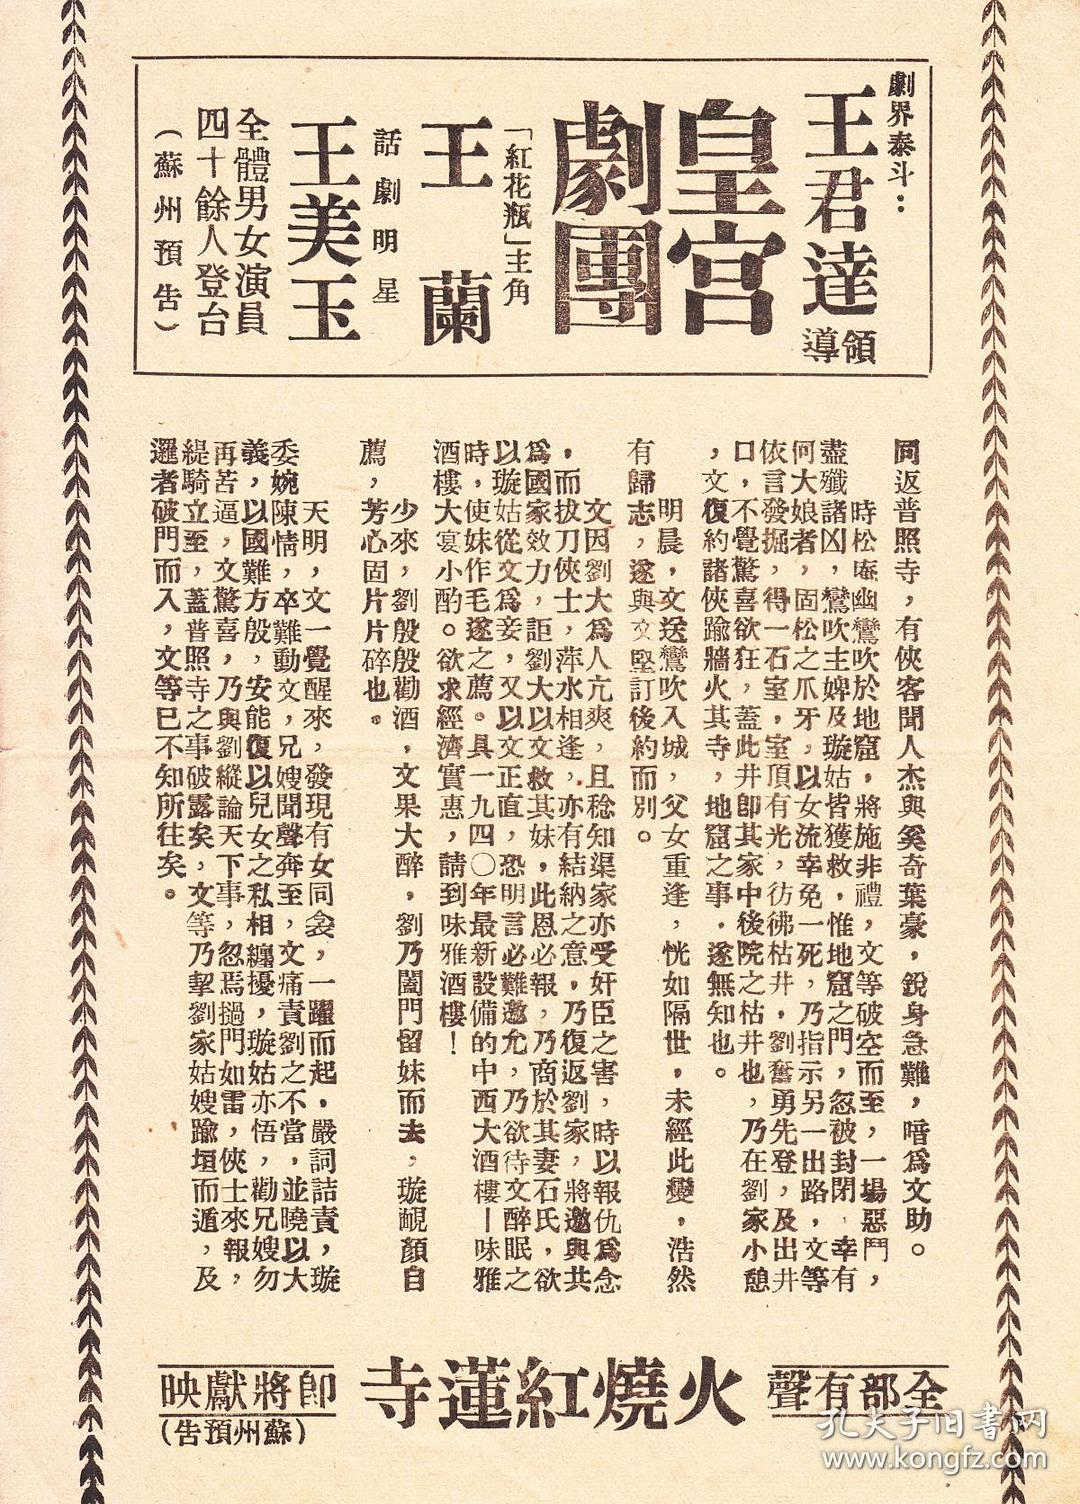 劇界泰斗：
王君達
領導
皇宮
劇團
「紅花瓶」主角
王蘭
話劇明星
王美玉
全體男女演員
四十餘人登台
（蘇州預告）
同返普照寺，有俠客聞人杰與奚奇葉豪，銳身急難，喑爲文助。
時松庵幽鸞吹於地窟，將施非禮，文等破空而至，一場惡鬥，
盡殲諸凶，鸞吹主婢及璇姑皆獲救，惟地窟之門，忽被封閉，幸有
何大娘者，固松之爪牙，以女流幸免一死，乃指示另一出路，文等
依言發掘，得一石室，室頂有光，彷彿枯井，劉奮勇先登，及出井
口，不覺驚喜欲狂，蓋此井卽其家中後院之枯井也，乃在劉家小憩
，文復約諸俠踰牆火其寺，地窟之事，遂無知也。
明晨，文送鸞吹入城，父女重逢，恍如隔世，未經此變，浩然
有歸志，遂與文堅訂後約而別。
文因劉大爲人亢爽，且稔知渠家亦受奸臣之害，時以報仇爲念
，而拔刀俠士，萍水相逢，亦有結納之意，乃復返劉家，將邀與共
爲國家效力，詎劉大以文救其妹，此恩必報，乃商於其妻石氏，欲
以璇姑從文爲妾，又以文正直，恐明言必難邀允，乃欲待文醉眠之
時，使妹作毛遂之薦。具一九四〇年最新設備的中西大酒樓－味雅
酒樓大宴小酌。欲求經濟實惠，請到味雅酒樓！
少來，劉殷殷勸酒，文果大醉，劉乃闔門留妹而去，璇靦顏自
薦，芳心固片片碎也。
天明，文一覺醒來，發現有女同衾，一躍而起，嚴詞詰責，璇
委婉陳情，卒難動文，兄嫂聞聲奔至，文痛責劉之不當，並曉以大
義，以國難方殷，安能復以兒女之私相纏擾，璇姑亦悟，勸兄嫂勿
再苦逼，文驚喜，乃與劉縱論天下事，忽焉撾門如雷，俠士來報，
緹騎立至，蓋普照寺之事破露矣，文等乃挈劉家姑嫂踰垣而遁，及
邏者破門而入，文等已不知所往矣。
全部有聲
火燒紅蓮寺
卽將獻映
（蘇州預告）
孔夫子旧书网
www.kongfz.com